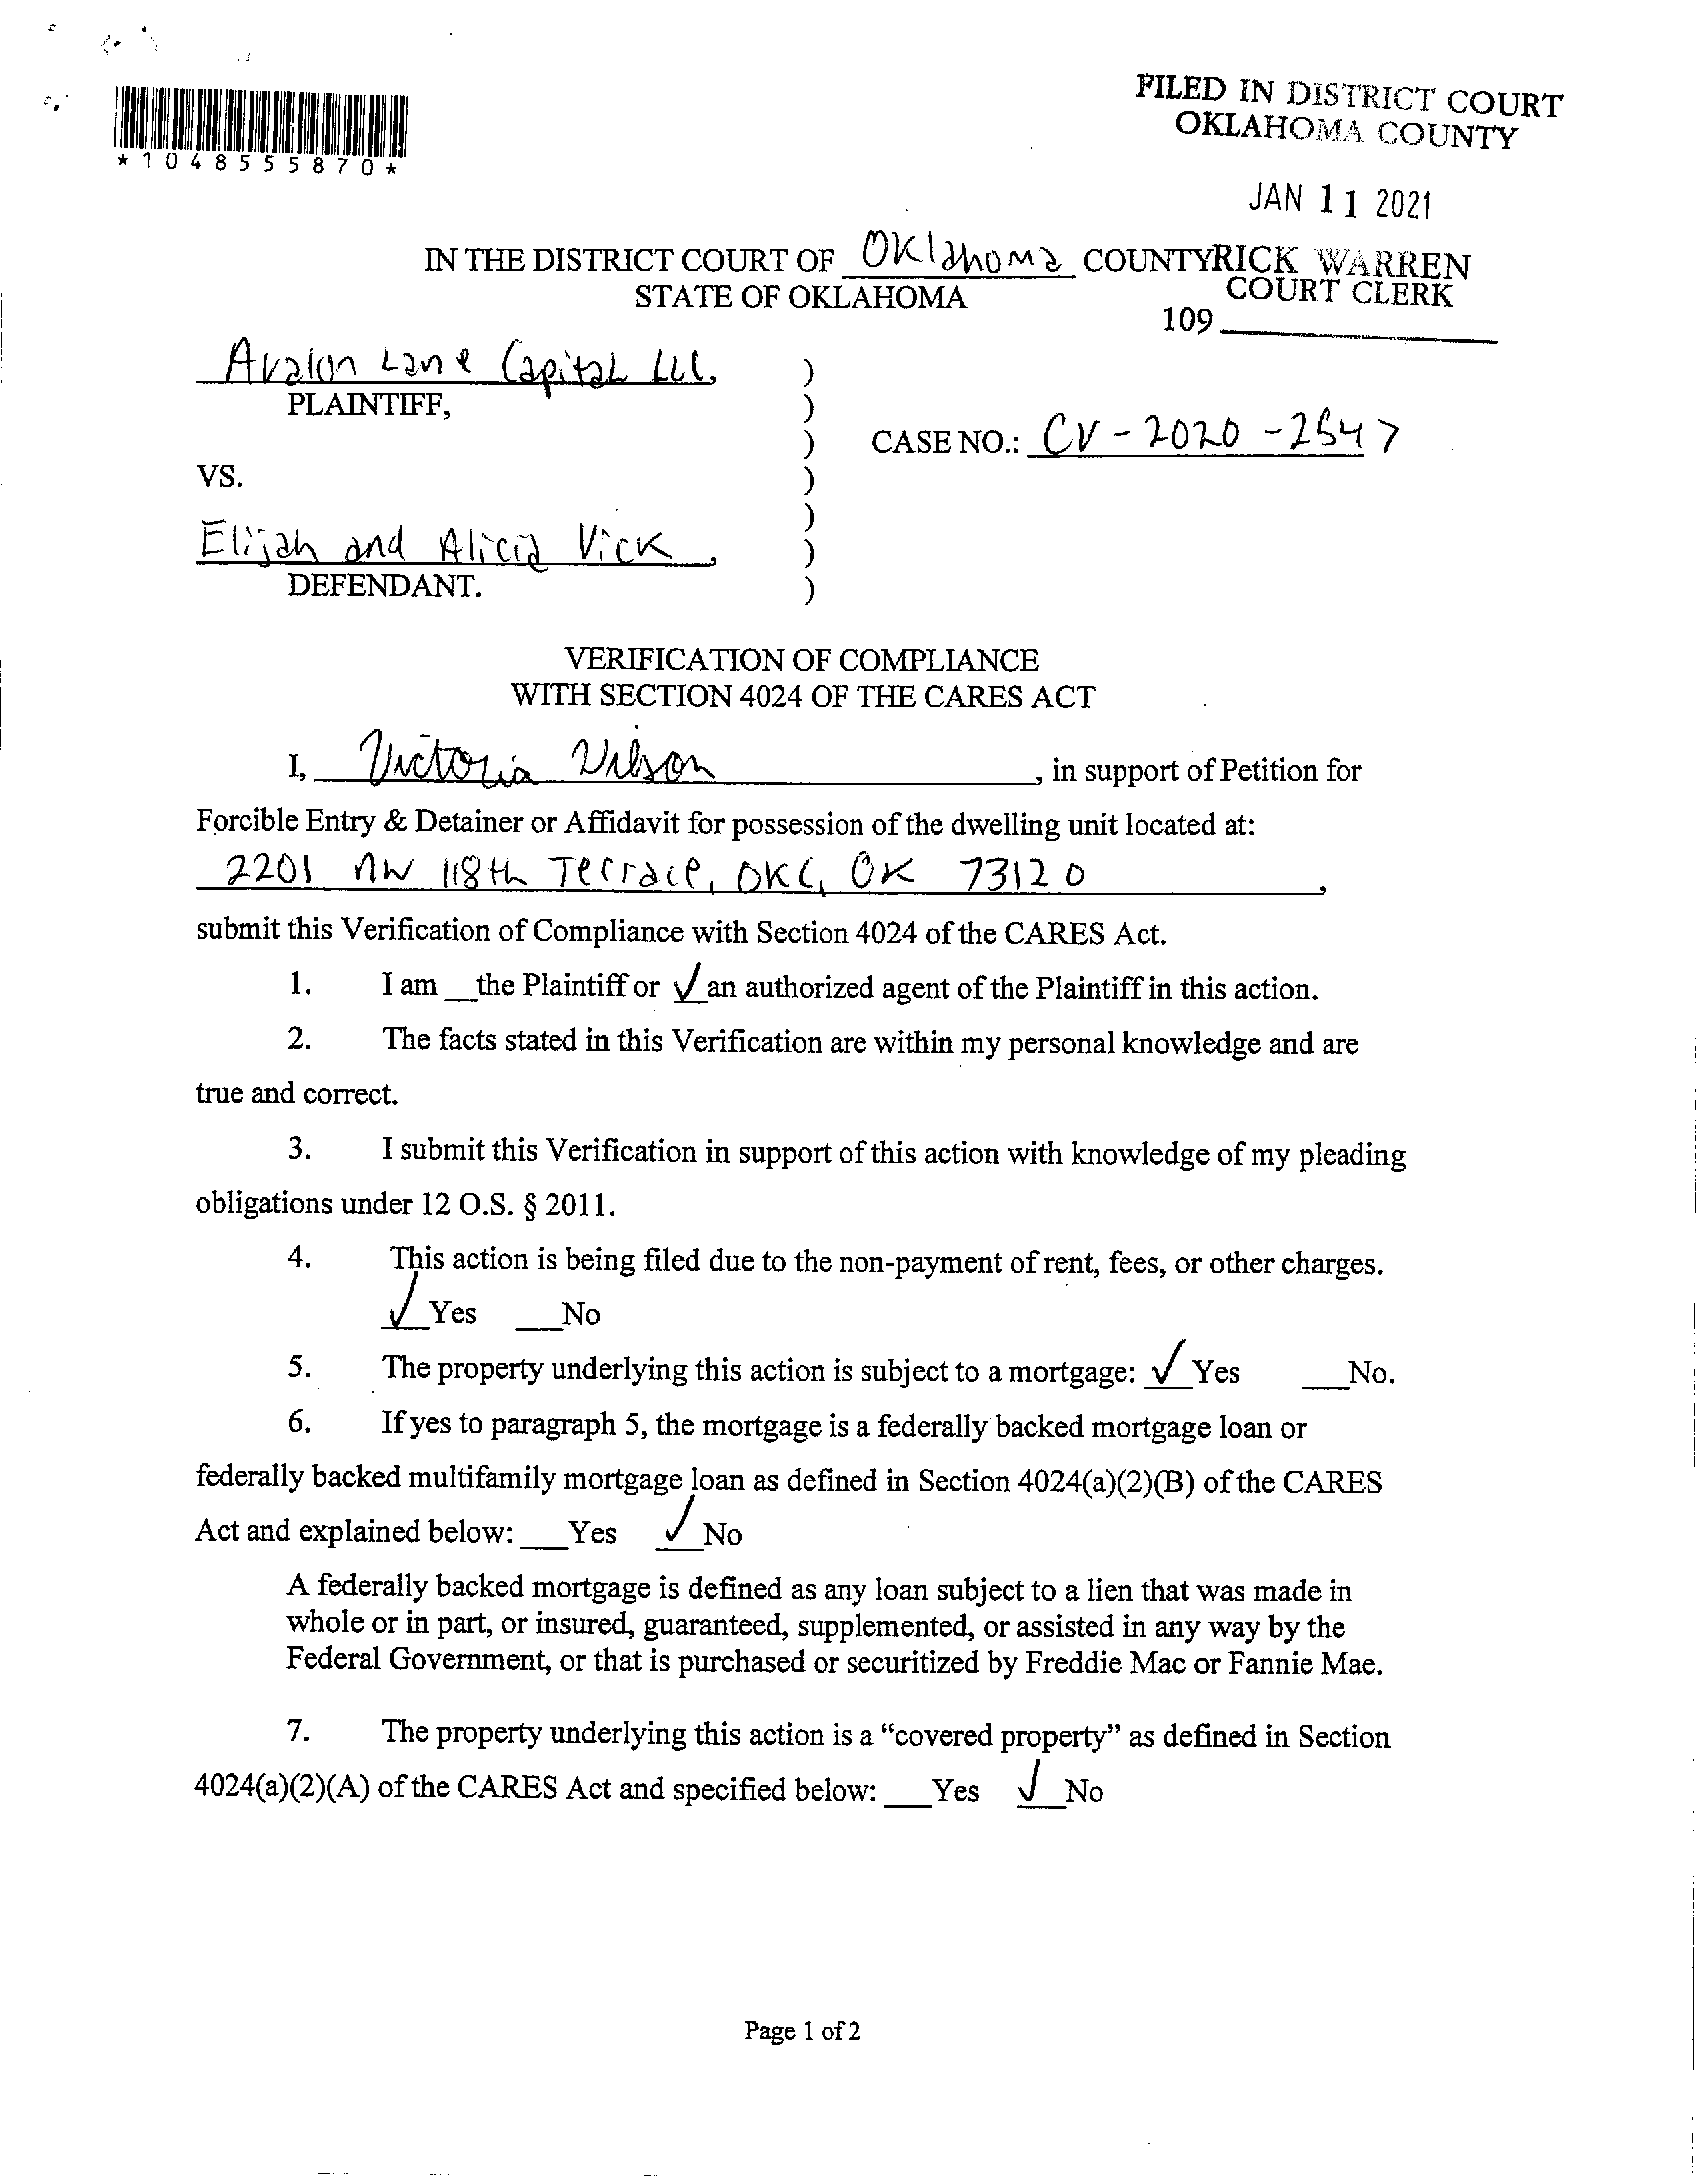 FILED IN DISTRICT COURT
OKLAHOMA COUNTY
*1048555870*
JAN 11 2021
IN THE DISTRICT COURT OF Oklahoma COUNTY RICK WARREN
STATE OF OKLAHOMA COURT CLERK
109
Avalon Lane Capital LLC,
PLAINTIFF,
CASE NO.: CV-2020-2547
VS.
Elijah and Alicia Vick,
DEFENDANT.
VERIFICATION OF COMPLIANCE
WITH SECTION 4024 OF THE CARES ACT
I, Victoria Wilson, in support of Petition for
Forcible Entry & Detainer or Affidavit for possession of the dwelling unit located at:
2201 NW 118th Terrace, OKC, OK 73120,
submit this Verification of Compliance with Section 4024 of the CARES Act.
1. I am __the Plaintiff or ✓ an authorized agent of the Plaintiff in this action.
2. The facts stated in this Verification are within my personal knowledge and are
true and correct.
3. I submit this Verification in support of this action with knowledge of my pleading
obligations under 12 O.S. § 2011.
4. This action is being filed due to the non-payment of rent, fees, or other charges.
✓ Yes __No
5. The property underlying this action is subject to a mortgage: ✓ Yes __No.
6. If yes to paragraph 5, the mortgage is a federally backed mortgage loan or
federally backed multifamily mortgage loan as defined in Section 4024(a)(2)(B) of the CARES
Act and explained below: __Yes ✓ No
A federally backed mortgage is defined as any loan subject to a lien that was made in
whole or in part, or insured, guaranteed, supplemented, or assisted in any way by the
Federal Government, or that is purchased or securitized by Freddie Mac or Fannie Mae.
7. The property underlying this action is a “covered property” as defined in Section
4024(a)(2)(A) of the CARES Act and specified below: __Yes ✓ No
Page 1 of 2